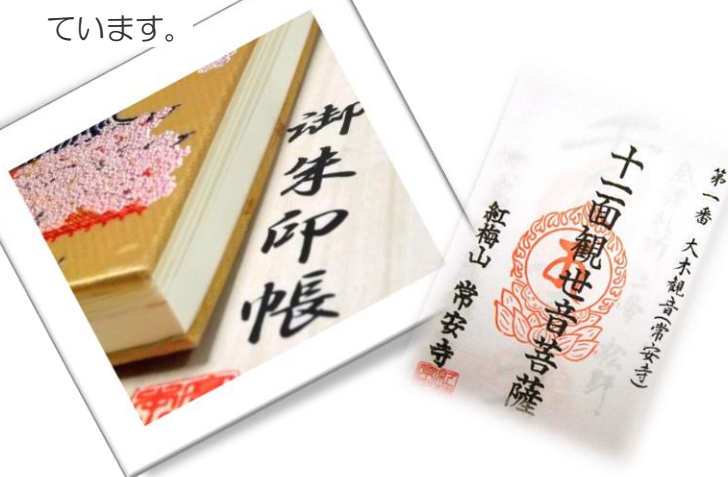 ています。
御朱印帳
第一番 大木観音(常安寺)
十一面観世音菩薩
紅梅山 常安寺